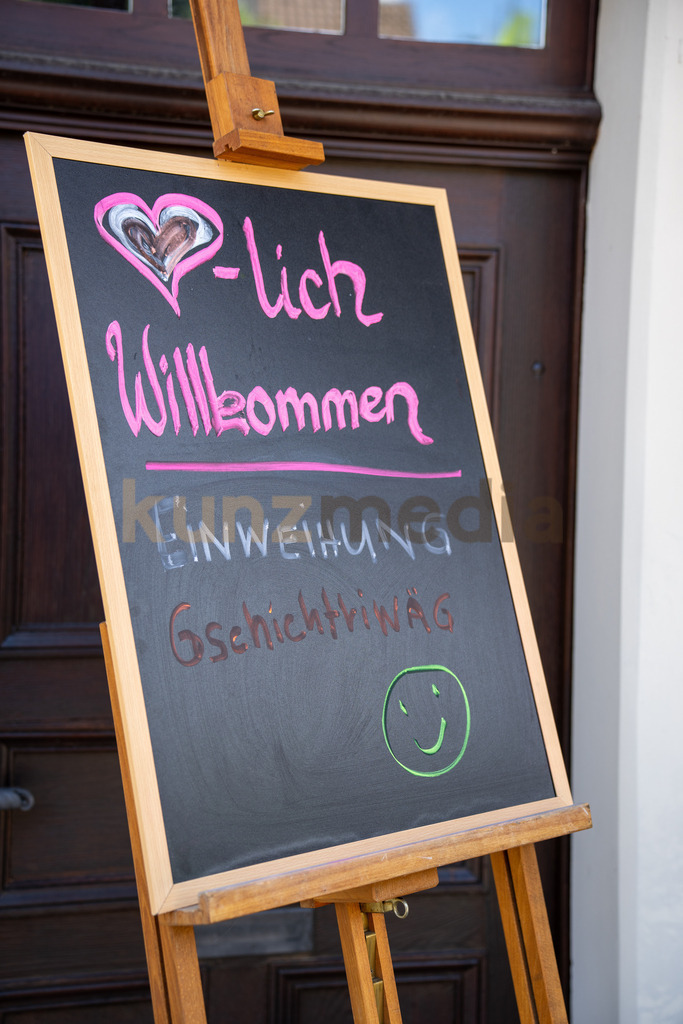 -lich
Willkommen
kunzmedia
EINWEIHUNG
GschichtriWÄG